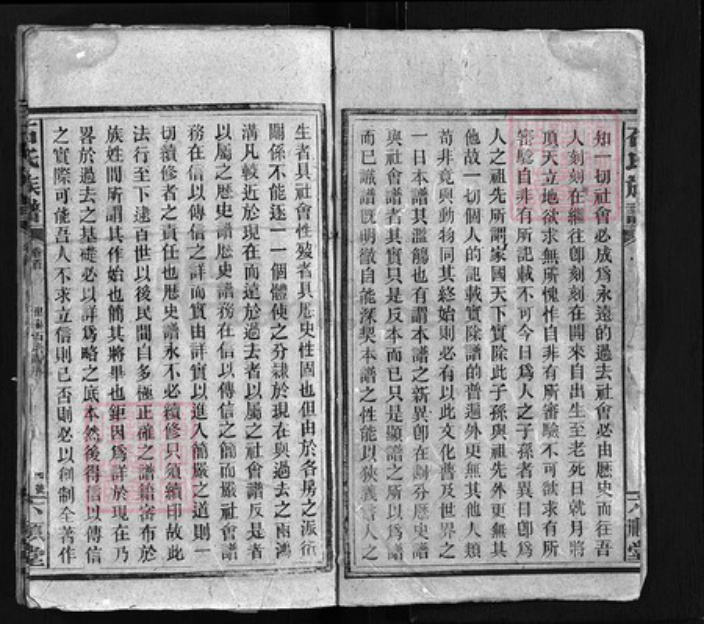 知一切社會必成爲永遠的過去社會必由歷史而往吾
人刻刻在繼往卽刻刻在開來自出生至老死日就月將
頂天立地欲求無所愧怍自非有所審驗不可欲求有所
審驗自非有所記載不可今日爲人之子孫者異日卽爲
人之祖先所謂家國天下實除此子孫與祖先外更無其
他故一切個人的記載實除譜的普遍外更無其他人類
苟非竟與動物同其終始則必有以此文化普及世界之
一日本譜其濫觴也有謂本譜之新異卽在劃分歷史譜
與社會譜者其實只是反本而已只是顯譜之所以爲譜
而已識譜旣明徹自能深契本譜之性能以狹義言人之
生者具社會性歿者具歷史性固也但由於各房之派衍
關係不能逐一一個體使之分隸於現在與過去之兩鴻
溝凡較近於現在而遠於過去者以屬之社會譜反是者
以屬之歷史譜歷史譜務在信以傳信之簡而嚴社會譜
務在信以傳信之詳而實由詳實以進入簡嚴之道則一
切續修者之責任也歷史譜永不必續修只須續印故此
法行至下逮百世以後民間自多極正確之譜籍審布於
族姓間所謂其作始也簡其將畢也鉅因爲詳於現在乃
畧於過去之基礎必以詳爲略之底本然後得信以傳信
之實際可能吾人不求立信則已否則必以創制全著作
石氏族譜
卷首
六順堂